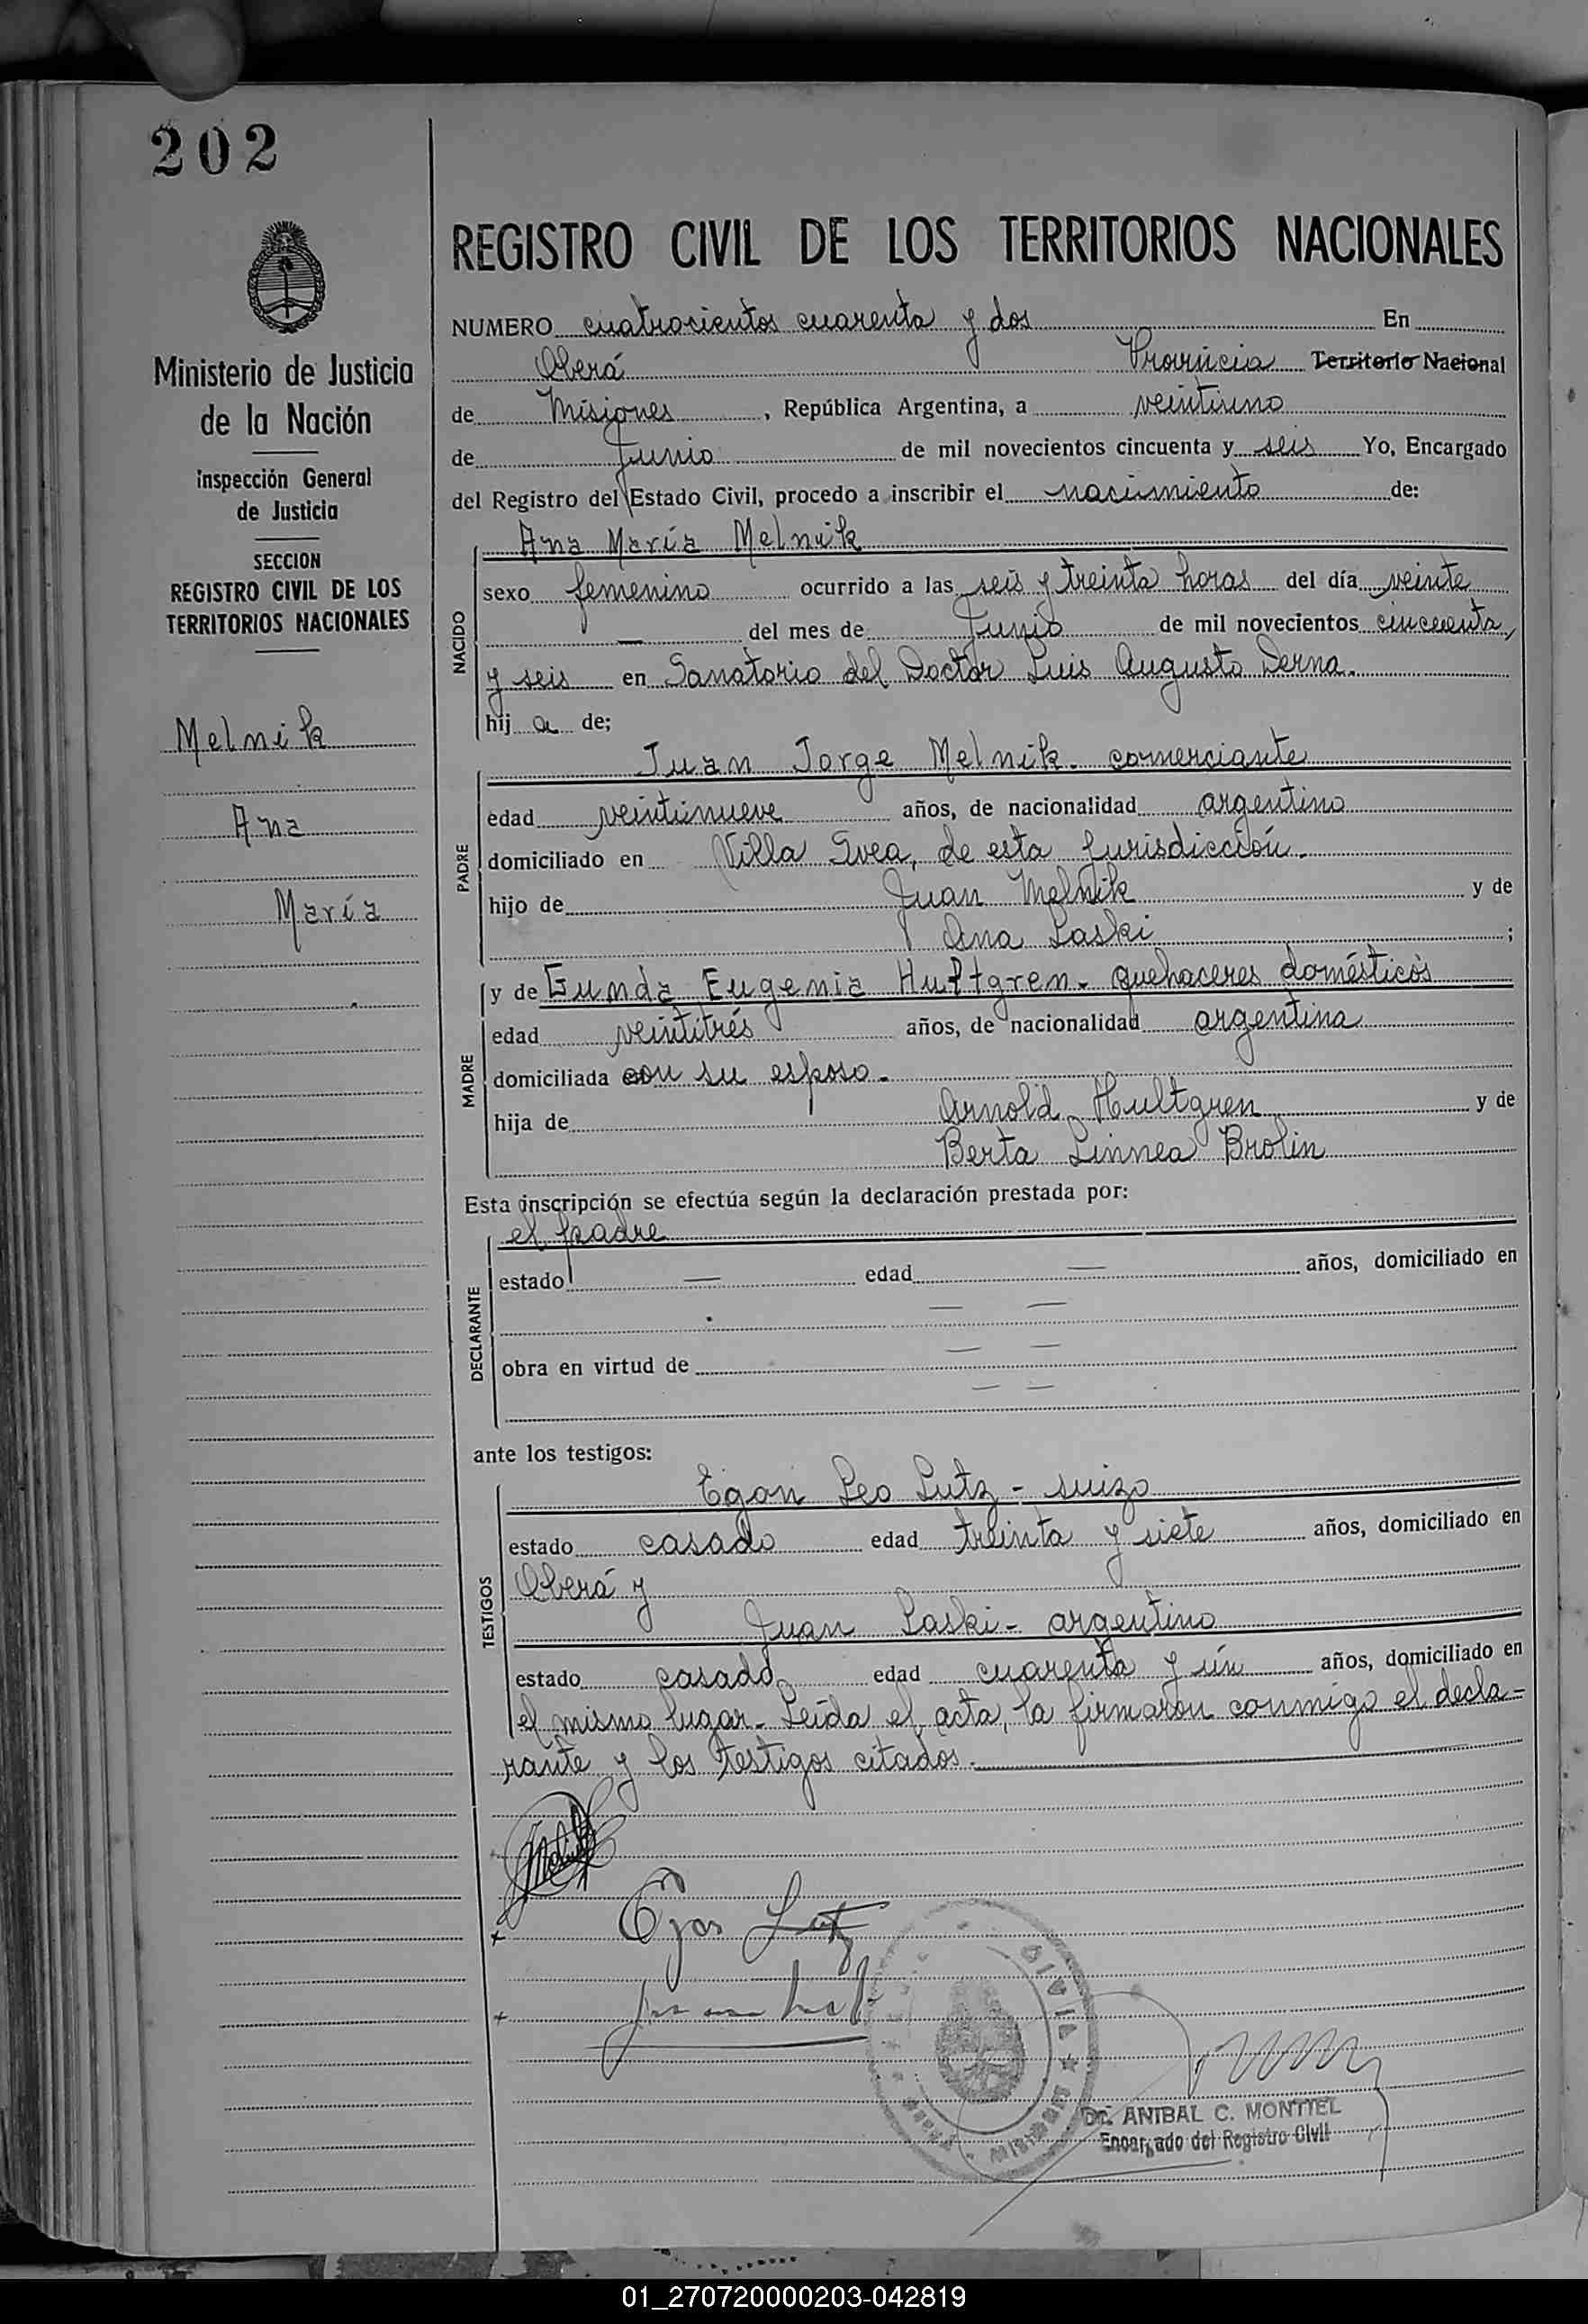 202
Ministerio de Justicia
de la Nación
Inspección General
de Justicia
SECCION
REGISTRO CIVIL DE LOS
TERRITORIOS NACIONALES
Melnik
Ana
María
REGISTRO CIVIL DE LOS TERRITORIOS NACIONALES
NUMERO cuatrocientos cuarenta y dos En
Oberá Provincia Territorio Nacional
de Misiones, República Argentina, a veintiuno
de Junio de mil novecientos cincuenta y seis Yo, Encargado
del Registro del Estado Civil, procedo a inscribir el nacimiento de:
NACIDO
Ana María Melnik
sexo femenino ocurrido a las seis y treinta horas del día veinte
— del mes de Junio de mil novecientos cincuenta
y seis en Sanatorio del Doctor Luis Augusto Derna.
hij a de;
PADRE
Juan Jorge Melnik. comerciante
edad veintinueve años, de nacionalidad argentino
domiciliado en Villa Svea, de esta Jurisdicción.
hijo de Juan Melnik y de
Ana Laski ;
MADRE
y de Gunda Eugenia Hultgren. quehaceres domésticos
edad veintitrés años, de nacionalidad argentina
domiciliada con su esposo.
hija de Arnold Hultgren y de
Berta Linnea Brolin
Esta inscripción se efectúa según la declaración prestada por:
DECLARANTE
el padre
estado — edad — años, domiciliado en
— —
obra en virtud de — —
— —
ante los testigos:
TESTIGOS
Egon Leo Lutz - suizo
estado casado edad treinta y siete años, domiciliado en
Oberá y
Juan Laski - argentino
estado casado edad cuarenta y ún años, domiciliado en
el mismo lugar. Leída el acta, la firmaron conmigo el decla-
rante y los testigos citados.
Melnik
Egon Lutz
Dr. ANIBAL C. MONTIEL
Encargado del Registro Civil
01_270720000203-042819